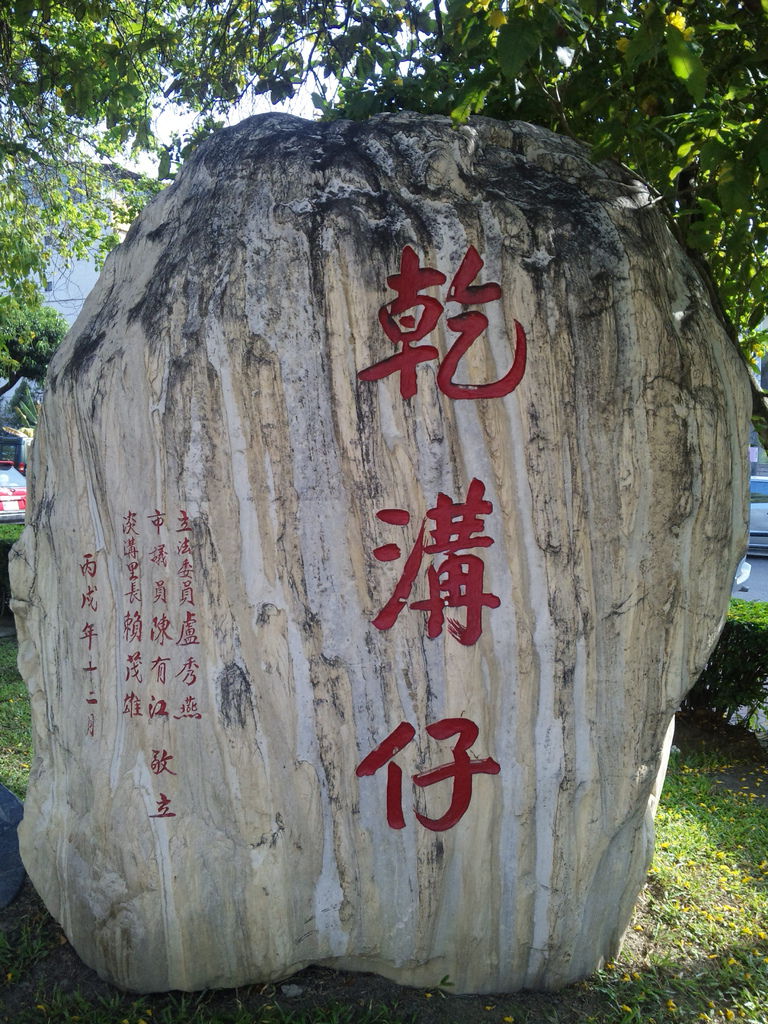 乾溝仔
立法委員盧秀燕
市議員陳有江敬立
淡溝里長賴茂雄
丙戌年十二月